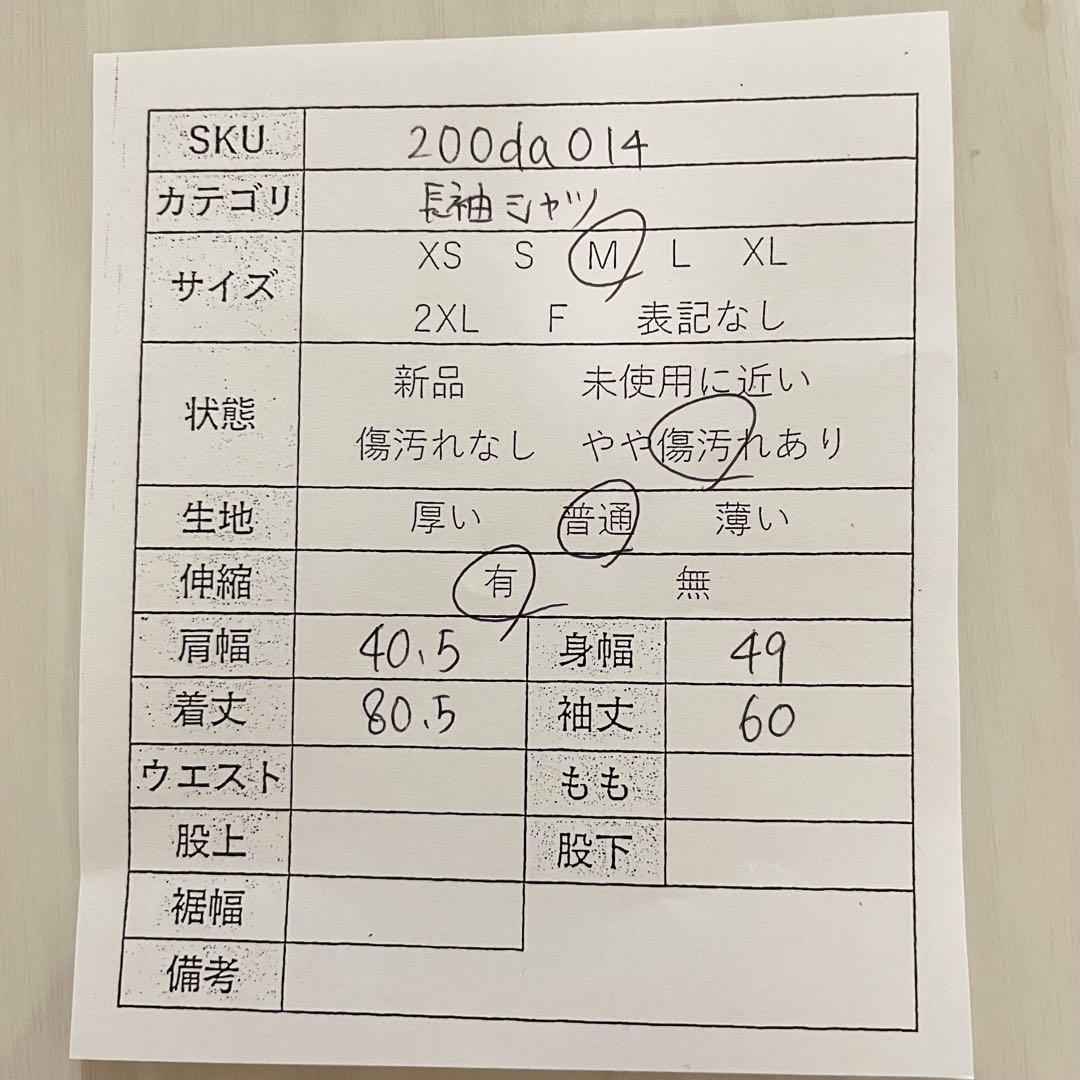 SKU 200da014
カテゴリ 長袖シャツ
サイズ XS S M L XL
2XL F 表記なし
状態 新品 未使用に近い
傷汚れなし やや傷汚れあり
生地 厚い 普通 薄い
伸縮 有 無
肩幅 40.5 身幅 49
着丈 80.5 袖丈 60
ウエスト もも
股上 股下
裾幅
備考